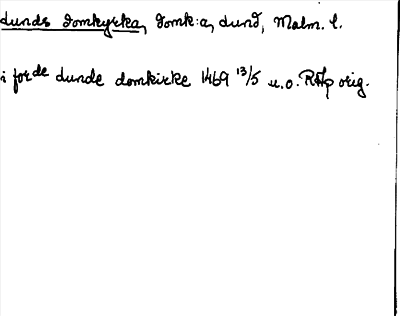 Lunds domkyrka, domk:a, Lund, Malm. l.
i forde Lunde domkirke 1469 13/5 u.o. RAp orig.